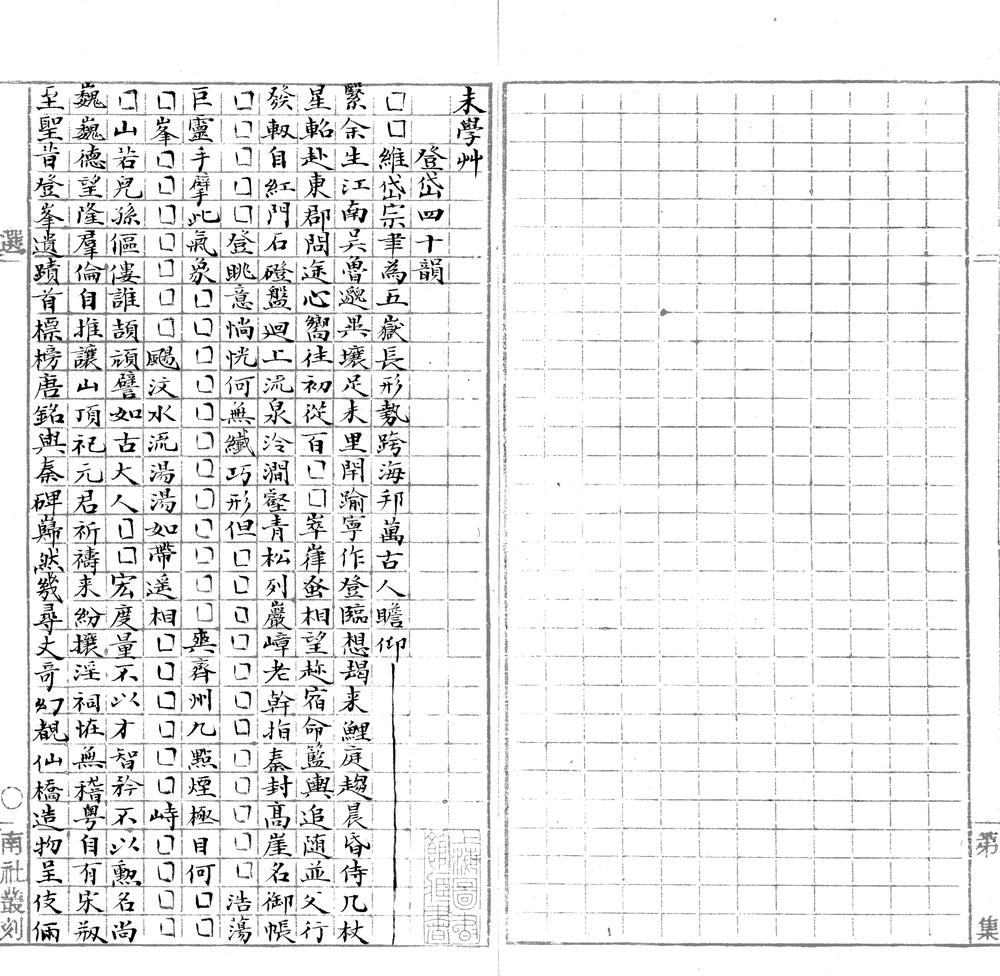 第　集
未學艸
登岱四十韻
□□維岱宗聿為五嶽長形勢跨海邦萬古人瞻仰
繄余生江南吳魯邈異壤足未里閈踰寧作登臨想朅来鯉庭趨晨昏侍几杖
星軺赴東郡問途心嚮往初從百□□崒嵂蚤相望趂宿命籃輿追随並父行
發軔自紅門石磴盤迴上流泉泠澗壑青松列巖嶂老幹指秦封高崖名御帳
□□□□□登眺意惝恍何無纖巧形但□□□□□□□□□□□□浩蕩
巨靈手擘此氣象□□□□□□□□□□□□爽齊州九點煙極目何□□
□峯□□□□□□□颺汶水流湯湯如帶遥相□□□□□□峙□□□□
□山若兒孫傴僂誰頡頏譬如古大人□□宏度量不以才智矜不以勲名尚
巍巍德望隆羣倫自推讓山頂祀元君祈禱来紛攘淫祠無稽粤自有宋昉
至聖昔登峯遺蹟首標榜唐銘與秦碑巋然幾尋丈奇幻覩仙橋造物呈伎倆
選　○　南社叢刻